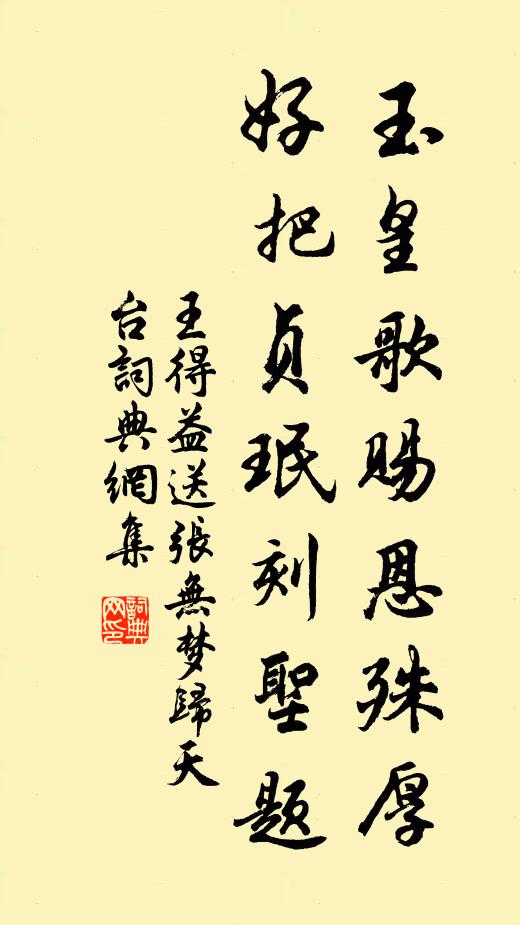 玉皇歌賜恩殊厚
好把貞珉刻聖題
王得益送張無梦歸天
台詞典網集
詞典网印